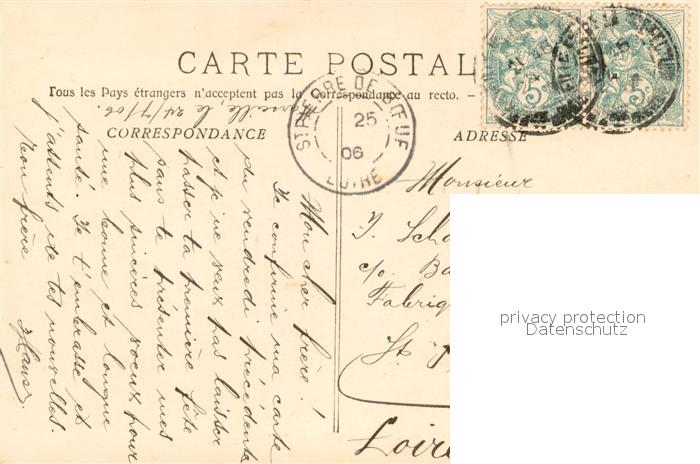 CARTE POSTAL
Tous les Pays étrangers n'acceptent pas la Correspondance au recto. —
CORRESPONDANCE
ADRESSE
ST PIERRE DE BŒUF
25
06
LOIRE
5c
5c
Marseille, le 24/7/06.
Mon cher frère!
Je confirme ma carte
du vendredi précédente
et je ne veux pas laisser
passer ta première fête
sans te présenter mes
plus sincères voeux pour
une bonne et longue
santé. Je t'embrasse et
j'attends de tes nouvelles.
Ton frère
Hans
Monsieur
J. Scho
c/o. Ba
Fabriq
St.
Loire
privacy protection
Datenschutz